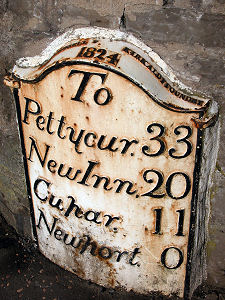 1824
To
Pettycur. 33
New Inn. 20
Cupar. 11
Newport. 0